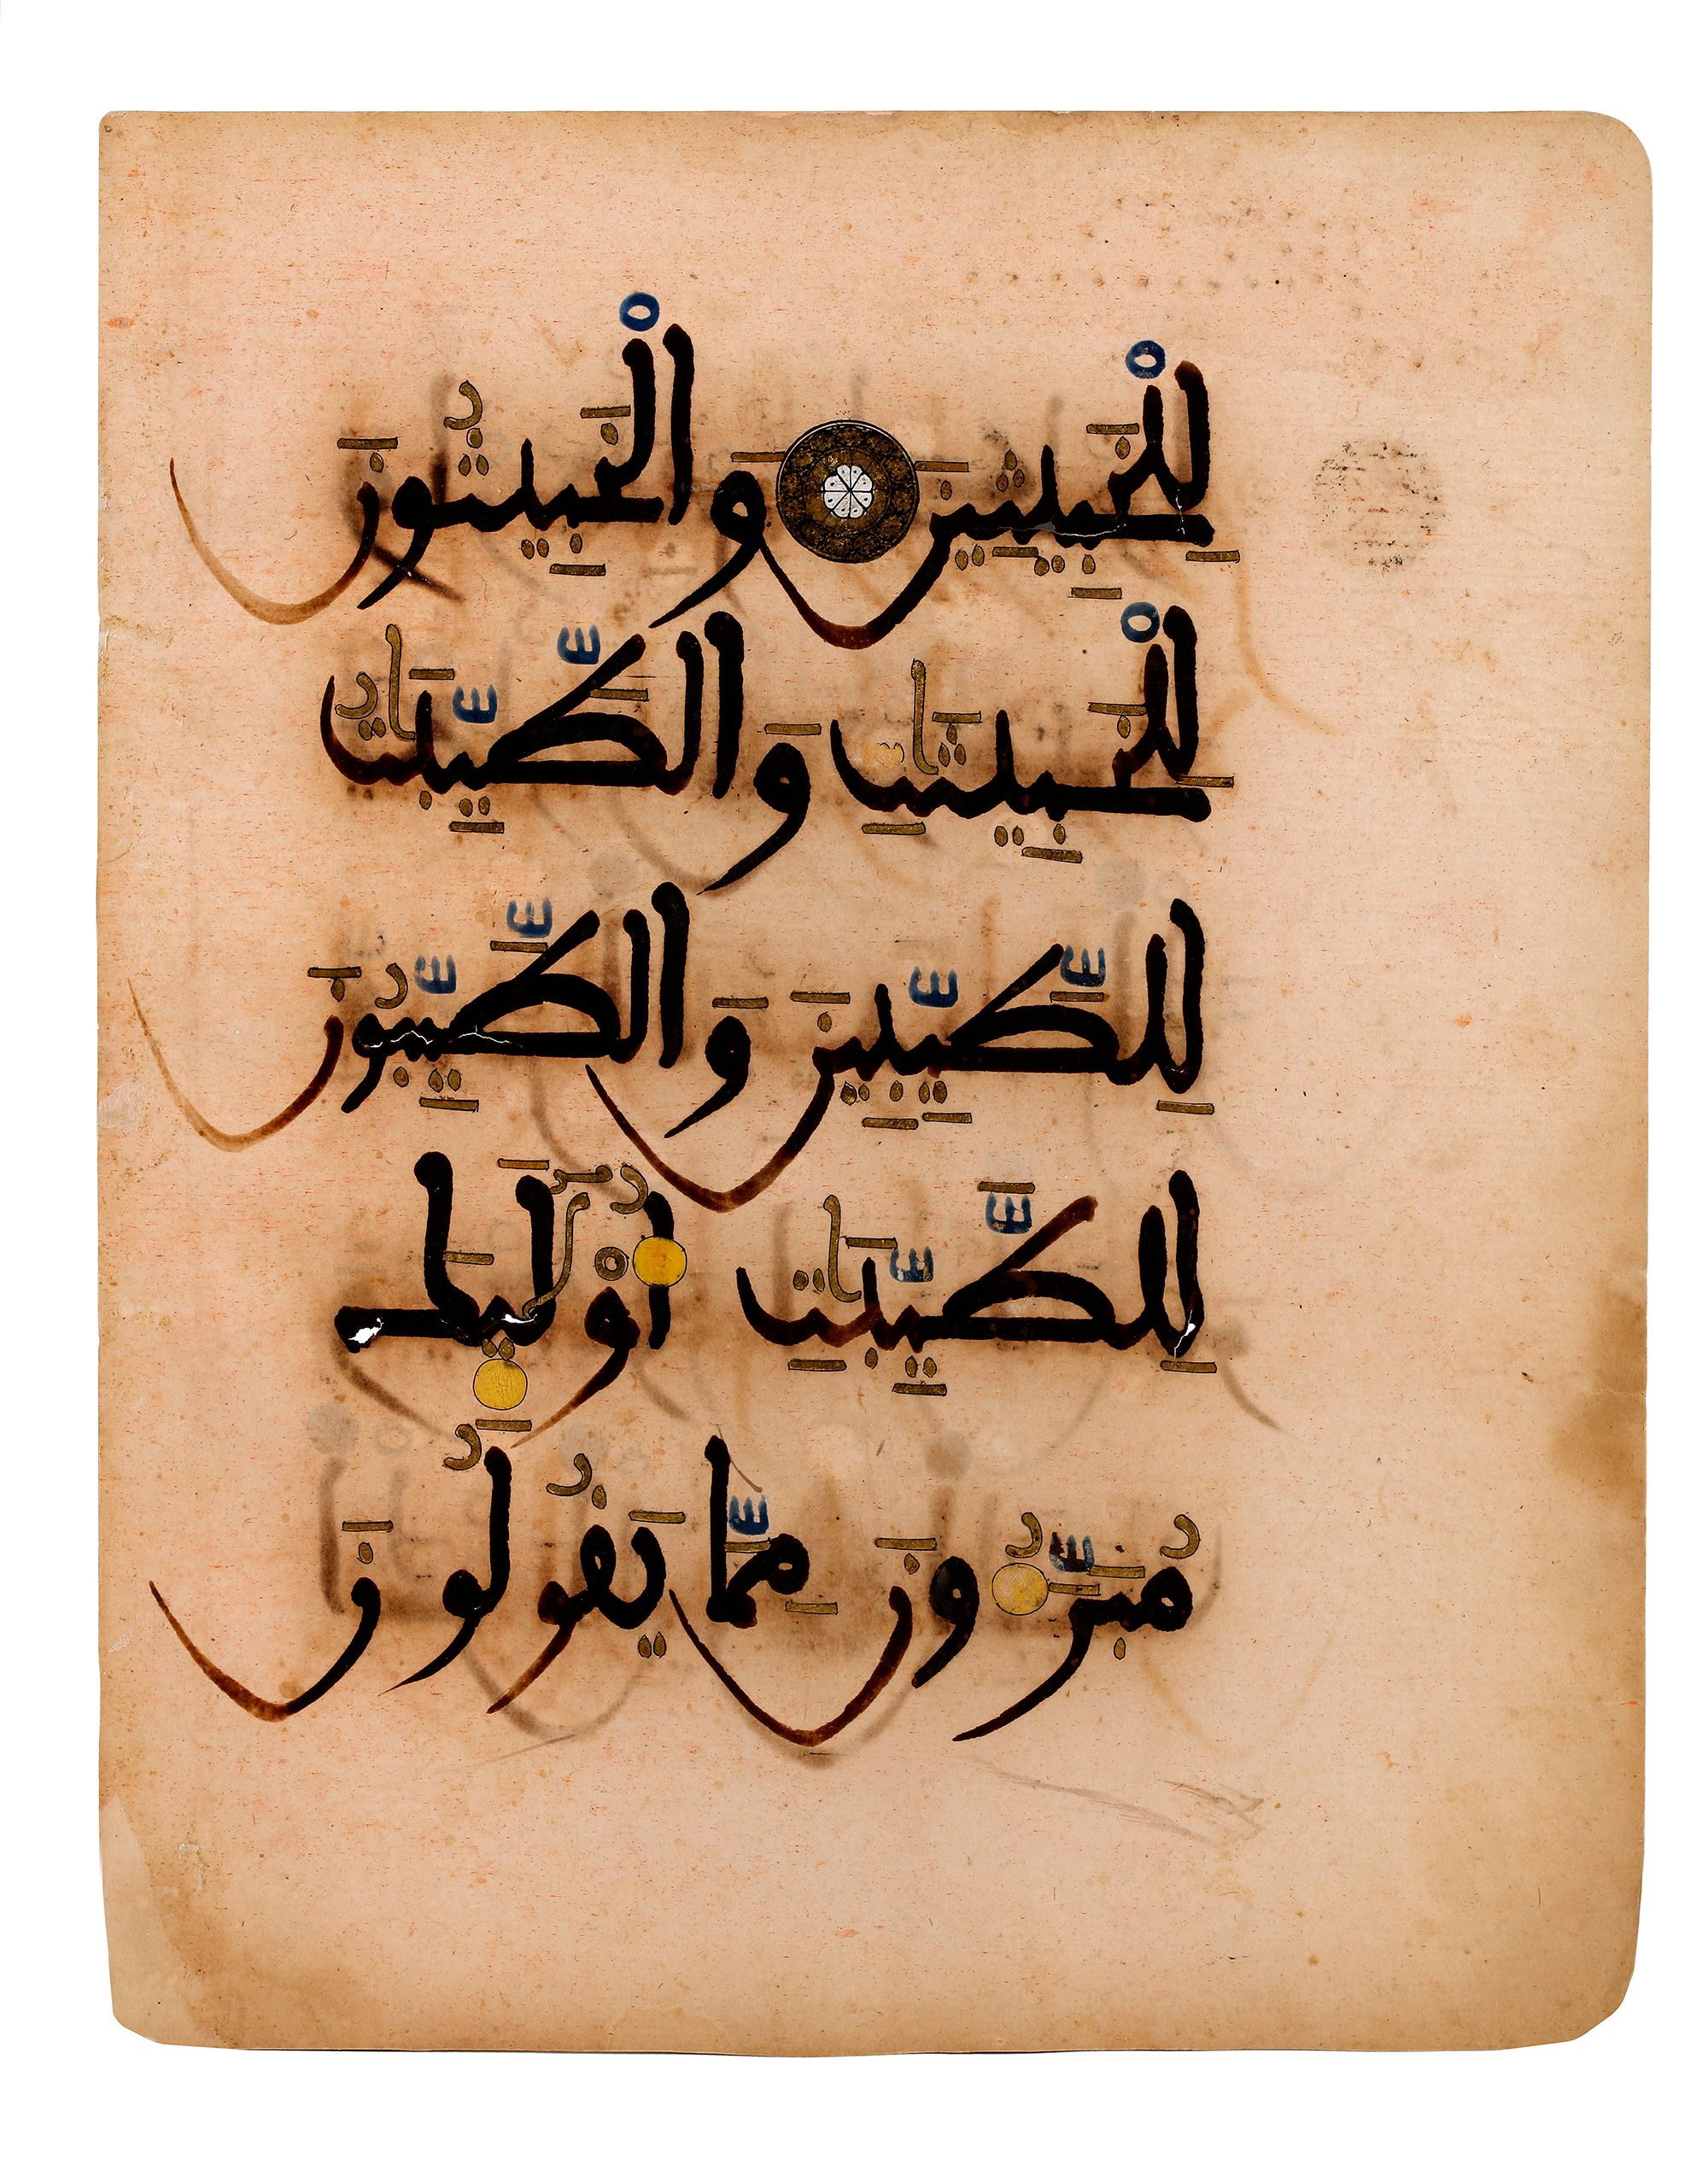 لِلْخَبِيثِينَ وَالْخَبِيثُونَ
لِلْخَبِيثَٰتِ وَالطَّيِّبَٰتُ
لِلطَّيِّبِينَ وَالطَّيِّبُونَ
لِلطَّيِّبَٰتِ أُوْلَٰئِكَ
مُبَرَّءُونَ مِمَّا يَقُولُونَ